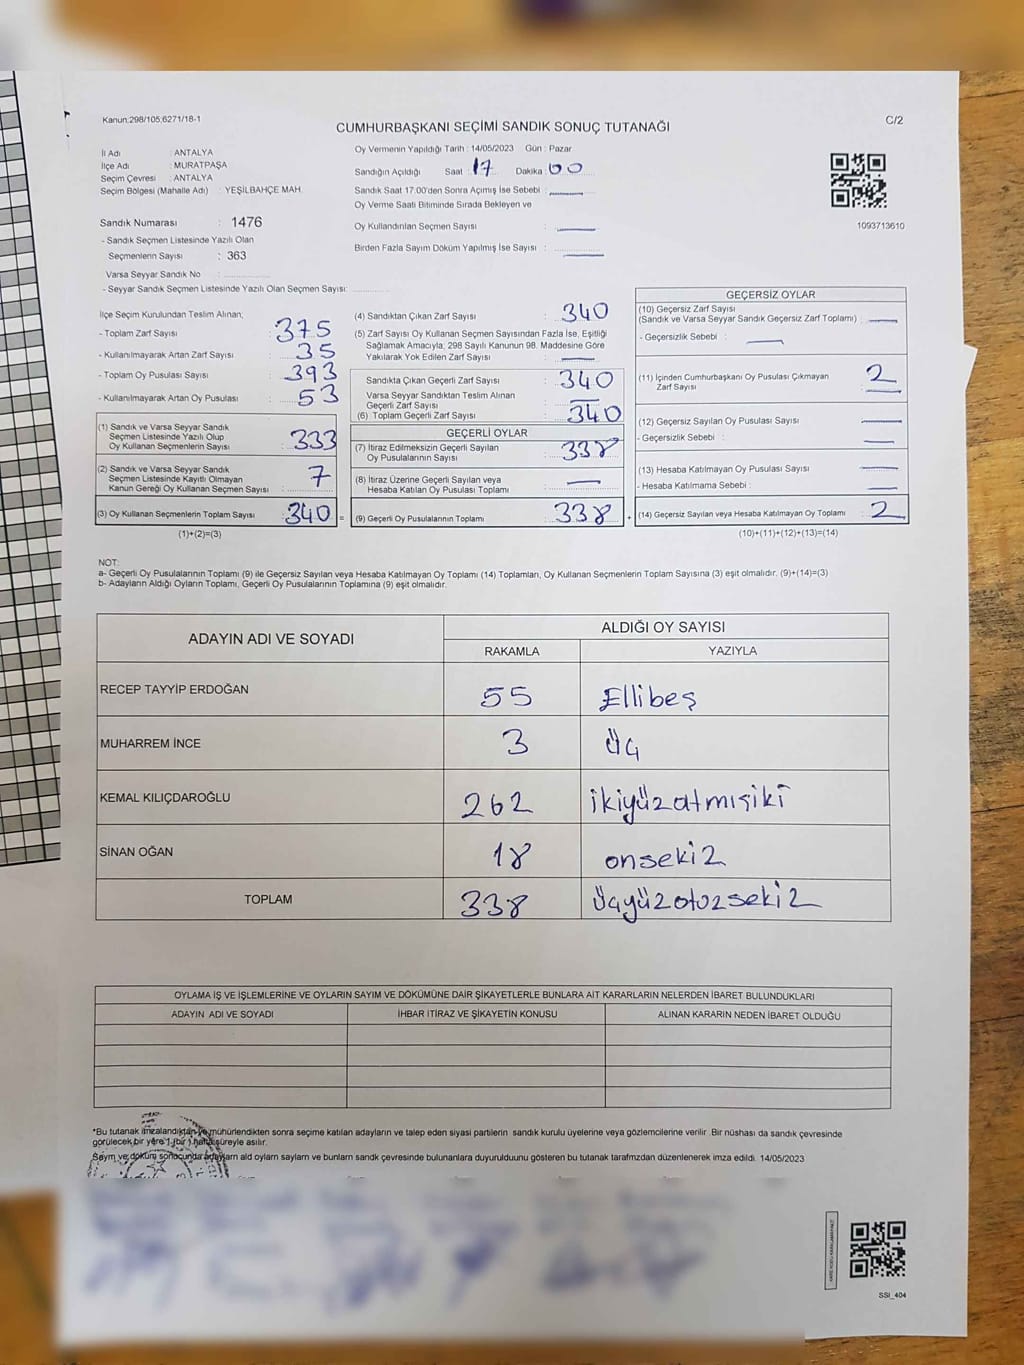 Kanun:298/105;6271/18-1
C/2
CUMHURBAŞKANI SEÇİMİ SANDIK SONUÇ TUTANAĞI
İl Adı : ANTALYA
İlçe Adı : MURATPAŞA
Seçim Çevresi : ANTALYA
Seçim Bölgesi (Mahalle Adı) : YEŞİLBAHÇE MAH.
Sandık Numarası : 1476
- Sandık Seçmen Listesinde Yazılı Olan
Seçmenlerin Sayısı : 363
Varsa Seyyar Sandık No :
- Seyyar Sandık Seçmen Listesinde Yazılı Olan Seçmen Sayısı:
Oy Vermenin Yapıldığı Tarih : 14/05/2023 Gün : Pazar
Sandığın Açıldığı Saat : 17 Dakika : 00
Sandık Saat 17:00'den Sonra Açımış İse Sebebi :
Oy Verme Saati Bitiminde Sırada Bekleyen ve
Oy Kullandırılan Seçmen Sayısı :
Birden Fazla Sayım Döküm Yapılmış İse Sayısı :
1093713610
İlçe Seçim Kurulundan Teslim Alınan;
- Toplam Zarf Sayısı : 375
- Kullanılmayarak Artan Zarf Sayısı : 35
- Toplam Oy Pusulası Sayısı : 393
- Kullanılmayarak Artan Oy Pusulası : 53
(1) Sandık ve Varsa Seyyar Sandık
Seçmen Listesinde Yazılı Olup
Oy Kullanan Seçmenlerin Sayısı : 333
(2) Sandık ve Varsa Seyyar Sandık
Seçmen Listesinde Kayıtlı Olmayan
Kanun Gereği Oy Kullanan Seçmen Sayısı : 7
(3) Oy Kullanan Seçmenlerin Toplam Sayısı : 340 =
(1)+(2)=(3)
(4) Sandıktan Çıkan Zarf Sayısı : 340
(5) Zarf Sayısı Oy Kullanan Seçmen Sayısından Fazla İse, Eşitliği
Sağlamak Amacıyla; 298 Sayılı Kanunun 98. Maddesine Göre
Yakılarak Yok Edilen Zarf Sayısı :
Sandıkta Çıkan Geçerli Zarf Sayısı : 340
Varsa Seyyar Sandıktan Teslim Alınan
Geçerli Zarf Sayısı :
(6) Toplam Geçerli Zarf Sayısı : 340
GEÇERLİ OYLAR
(7) İtiraz Edilmeksizin Geçerli Sayılan
Oy Pusulalarının Sayısı : 338
(8) İtiraz Üzerine Geçerli Sayılan veya
Hesaba Katılan Oy Pusulası Toplamı :
(9) Geçerli Oy Pusulalarının Toplamı : 338 +
GEÇERSİZ OYLAR
(10) Geçersiz Zarf Sayısı
(Sandık ve Varsa Seyyar Sandık Geçersiz Zarf Toplamı) :
- Geçersizlik Sebebi :
(11) İçinden Cumhurbaşkanı Oy Pusulası Çıkmayan
Zarf Sayısı : 2
(12) Geçersiz Sayılan Oy Pusulası Sayısı :
- Geçersizlik Sebebi :
(13) Hesaba Katılmayan Oy Pusulası Sayısı :
- Hesaba Katılmama Sebebi :
(14) Geçersiz Sayılan veya Hesaba Katılmayan Oy Toplamı : 2
(10)+(11)+(12)+(13)=(14)
NOT:
a- Geçerli Oy Pusulalarının Toplamı (9) ile Geçersiz Sayılan veya Hesaba Katılmayan Oy Toplamı (14) Toplamları, Oy Kullanan Seçmenlerin Toplam Sayısına (3) eşit olmalıdır. (9)+(14)=(3)
b- Adayların Aldığı Oyların Toplamı, Geçerli Oy Pusulalarının Toplamına (9) eşit olmalıdır.
ADAYIN ADI VE SOYADI
ALDIĞI OY SAYISI
RAKAMLA YAZIYLA
RECEP TAYYİP ERDOĞAN 55 Ellibeş
MUHARREM İNCE 3 Üç
KEMAL KILIÇDAROĞLU 262 ikiyüzatmışiki
SİNAN OĞAN 18 onsekiz
TOPLAM 338 üçyüzotuzsekiz
OYLAMA İŞ VE İŞLEMLERİNE VE OYLARIN SAYIM VE DÖKÜMÜNE DAİR ŞİKAYETLERLE BUNLARA AİT KARARLARIN NELERDEN İBARET BULUNDUKLARI
ADAYIN ADI VE SOYADI İHBAR İTİRAZ VE ŞİKAYETİN KONUSU ALINAN KARARIN NEDEN İBARET OLDUĞU
*Bu tutanak imzalandıktan ve mühürlendikten sonra seçime katılan adayların ve talep eden siyasi partilerin sandık kurulu üyelerine veya gözlemcilerine verilir. Bir nüshası da sandık çevresinde
görülecek bir yere 1 (bir) hafta süreyle asılır.
Sayım ve döküm sonucunda adayların ald oyların sayları ve bunların sandk çevresinde bulunanlara duyurulduunu gösteren bu tutanak tarafmzdan düzenlenerek imza edildi. 14/05/2023
SSI_404